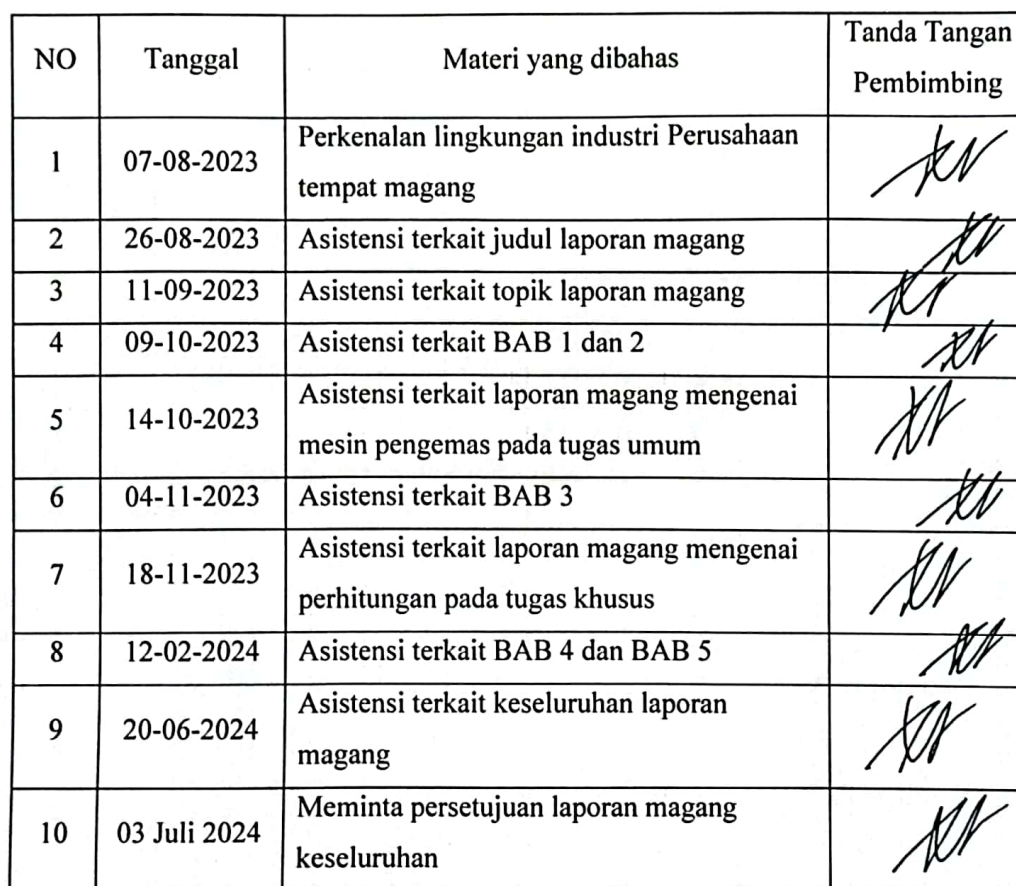 NO Tanggal Materi yang dibahas Tanda Tangan
Pembimbing
1 07-08-2023 Perkenalan lingkungan industri Perusahaan
tempat magang
2 26-08-2023 Asistensi terkait judul laporan magang
3 11-09-2023 Asistensi terkait topik laporan magang
4 09-10-2023 Asistensi terkait BAB 1 dan 2
5 14-10-2023 Asistensi terkait laporan magang mengenai
mesin pengemas pada tugas umum
6 04-11-2023 Asistensi terkait BAB 3
7 18-11-2023 Asistensi terkait laporan magang mengenai
perhitungan pada tugas khusus
8 12-02-2024 Asistensi terkait BAB 4 dan BAB 5
9 20-06-2024 Asistensi terkait keseluruhan laporan
magang
10 03 Juli 2024 Meminta persetujuan laporan magang
keseluruhan